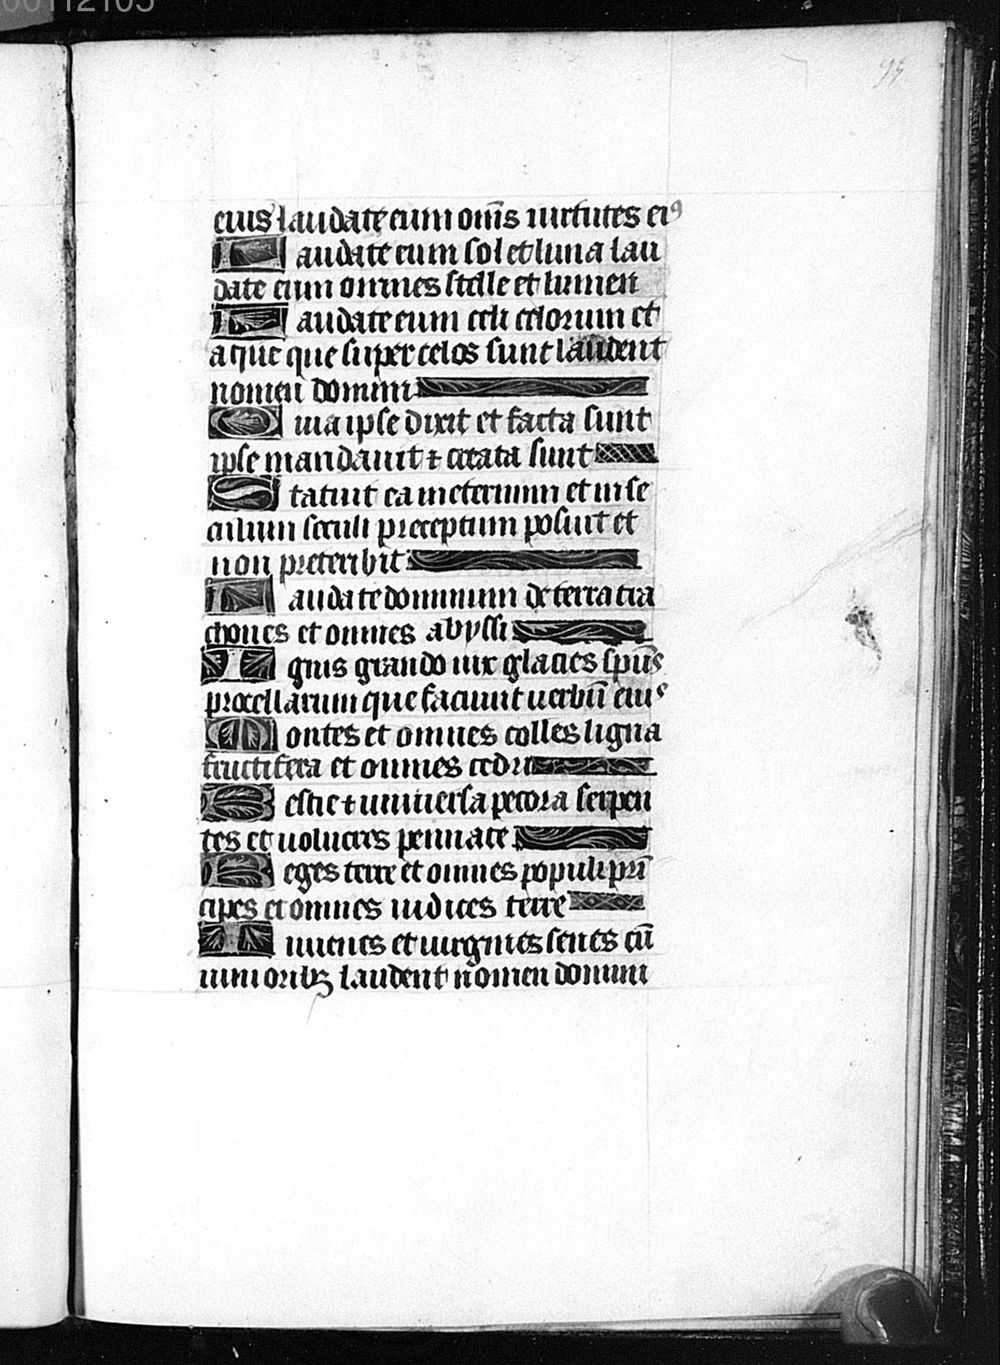 00112105
95
eius laudate eum om̄s uirtutes eiꝰ
Laudate eum sol et luna lau
date eum omnes stelle et lumen
Laudate eum celi celorum et
aque que super celos sunt laudent
nomen domini
Quia ipse dixit et facta sunt
ipse mandauit ⁊ creata sunt
Statuit ea in eternum et in se
culum seculi preceptum posuit et
non preteribit
Laudate dominum de terra dra
chones et omnes abyssi
Ignis grando nix glacies sp̄us
procellarum que faciunt uerbū eiuˢ
Montes et omnes colles ligna
fructifera et omnes cedri
Bestie ⁊ uniuersa pecora serpen
tes et uolucres pennate
Reges terre et omnes populi prī
cipes et omnes iudices terre
Iuuenes et uirgines senes cū
iunioribꝫ laudent nomen domini